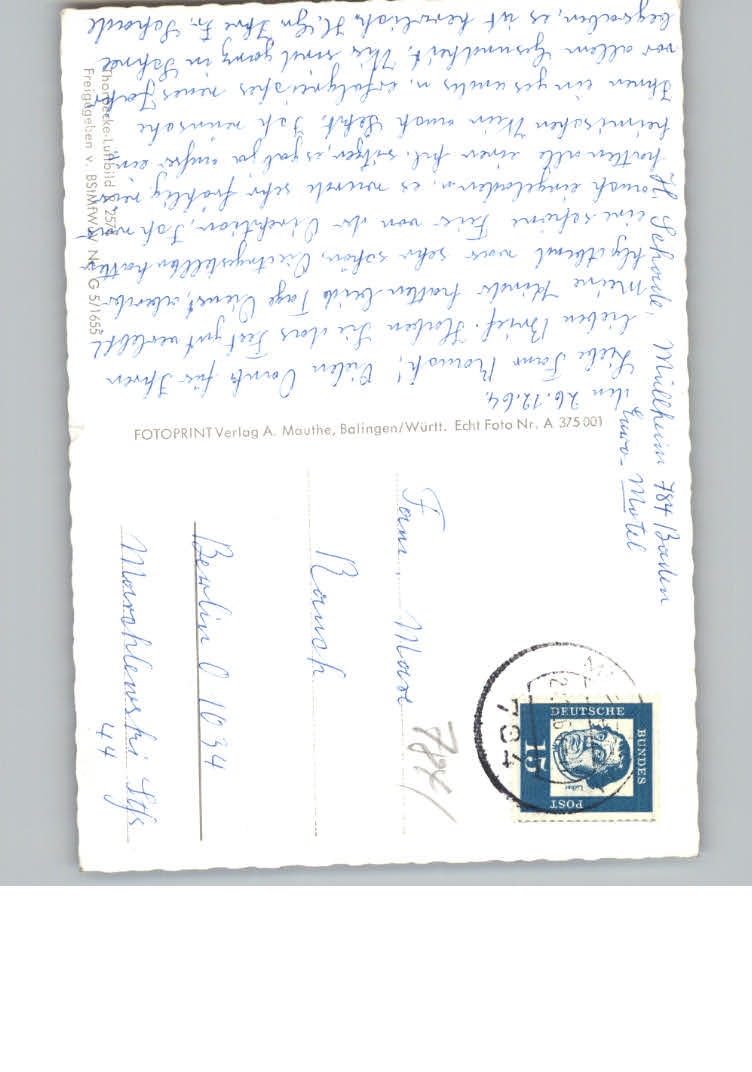 H. Schade, Müllheim 784 Baden
Euro-Motel
den 26.12.64.
Liebe Fam. Rausch! Vielen Dank für Ihren
lieben Brief. Haben Sie das Fest gut verlebt?
Meine Kinder hatten beide Tage Dienst, aber der
Hlg. Abend war sehr schön, Dienstgestellten hatten
eine schöne Feier von der Direktion, Ich war
auch eingeladen u. es wurde sehr fröhlig, wir
hatten alle einen sitzen, es gab ja außer ein-
heimischen Wein auch Sekt. Ich wünsche
Ihnen ein gesundes u. erfolgreiches neues Jahr
vor allem Gesundheit. Wir sind ganz in Schnee
begraben, es ist herrlich. H. Gr. Ihre Fr. Schade
Thorbecke-Luftbild
Freigegeben v. BStMfWuV Nr. G 5/1655
FOTOPRINT Verlag A. Mauthe, Balingen/Württ. Echt Foto Nr. A 375001
Fam. Max
Rausch
Berlin O 1034
Marchlewski Str
44
784
DEUTSCHE
BUNDES
POST
15
Luther
784